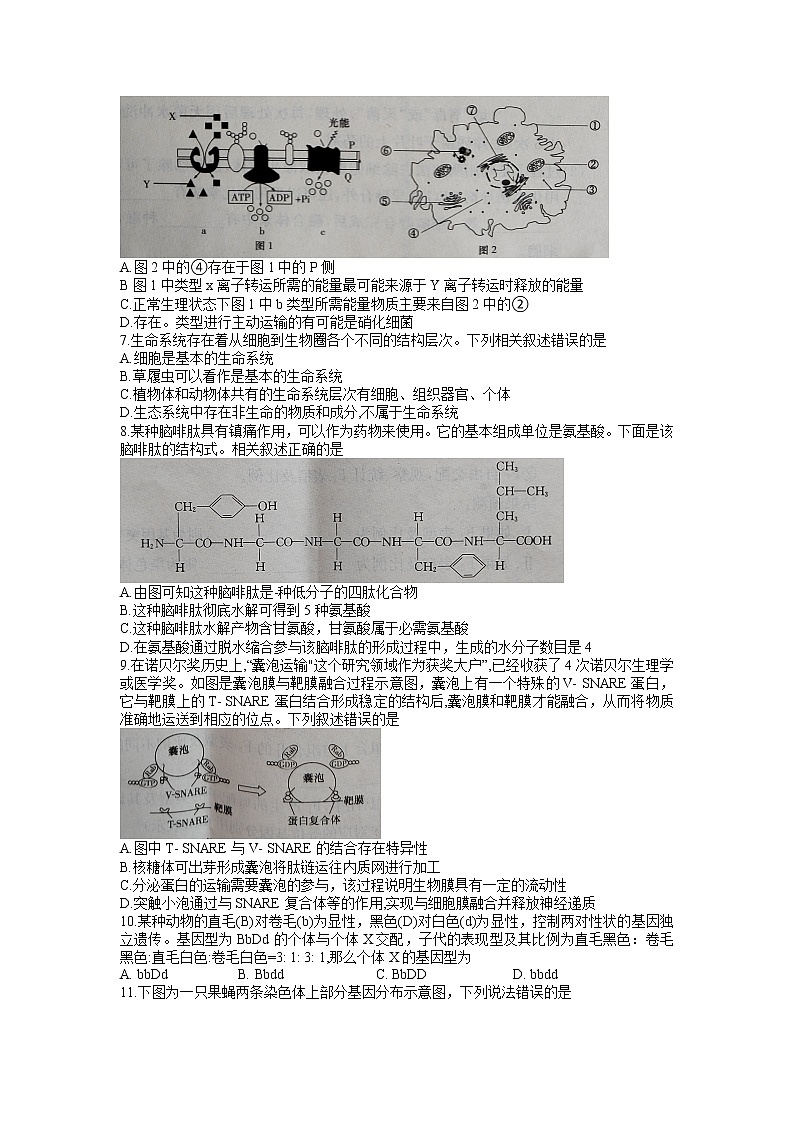 X
Y
ATP
ADP
+Pi
光能
P
Q
a
b
c
图1
①
②
③
④
⑤
⑥
⑦
图2
A.图2中的④存在于图1中的P侧
B 图1中类型x离子转运所需的能量最可能来源于Y离子转运时释放的能量
C.正常生理状态下图1中b类型所需能量物质主要来自图2中的②
D.存在。类型进行主动运输的有可能是硝化细菌
7.生命系统存在着从细胞到生物圈各个不同的结构层次。下列相关叙述错误的是
A.细胞是基本的生命系统
B.草履虫可以看作是基本的生命系统
C.植物体和动物体共有的生命系统层次有细胞、组织器官、个体
D.生态系统中存在非生命的物质和成分,不属于生命系统
8.某种脑啡肽具有镇痛作用，可以作为药物来使用。它的基本组成单位是氨基酸。下面是该
脑啡肽的结构式。相关叙述正确的是
CH₃
CH—CH₃
CH₂ OH
H H H CH₃
H₂N—C—CO—NH—C—CO—NH—C—CO—NH—C—CO—NH—C—COOH
H H H CH₂ H
A.由图可知这种脑啡肽是-种低分子的四肽化合物
B.这种脑啡肽彻底水解可得到5种氨基酸
C.这种脑啡肽水解产物含甘氨酸，甘氨酸属于必需氨基酸
D.在氨基酸通过脱水缩合参与该脑啡肽的形成过程中，生成的水分子数目是4
9.在诺贝尔奖历史上,“囊泡运输"这个研究领域作为获奖大户”,已经收获了4次诺贝尔生理学
或医学奖。如图是囊泡膜与靶膜融合过程示意图，囊泡上有一个特殊的V- SNARE蛋白，
它与靶膜上的T- SNARE蛋白结合形成稳定的结构后,囊泡膜和靶膜才能融合，从而将物质
准确地运送到相应的位点。下列叙述错误的是
囊泡
Rab
GTP
Rab
GTP
V-SNARE
靶膜
T-SNARE
Rab
GDP
Rab
GDP
囊泡
靶膜
蛋白复合体
A.图中T- SNARE与V- SNARE的结合存在特异性
B.核糖体可出芽形成囊泡将肽链运往内质网进行加工
C.分泌蛋白的运输需要囊泡的参与，该过程说明生物膜具有一定的流动性
D.突触小泡通过与SNARE复合体等的作用,实现与细胞膜融合并释放神经递质
10.某种动物的直毛(B)对卷毛(b)为显性，黑色(D)对白色(d)为显性，控制两对性状的基因独
立遗传。基因型为BbDd的个体与个体X交配，子代的表现型及其比例为直毛黑色：卷毛
黑色:直毛白色:卷毛白色=3: 1: 3: 1,那么个体X的基因型为
A. bbDd B. Bbdd C. BbDD D. bbdd
11.下图为一只果蝇两条染色体上部分基因分布示意图，下列说法错误的是